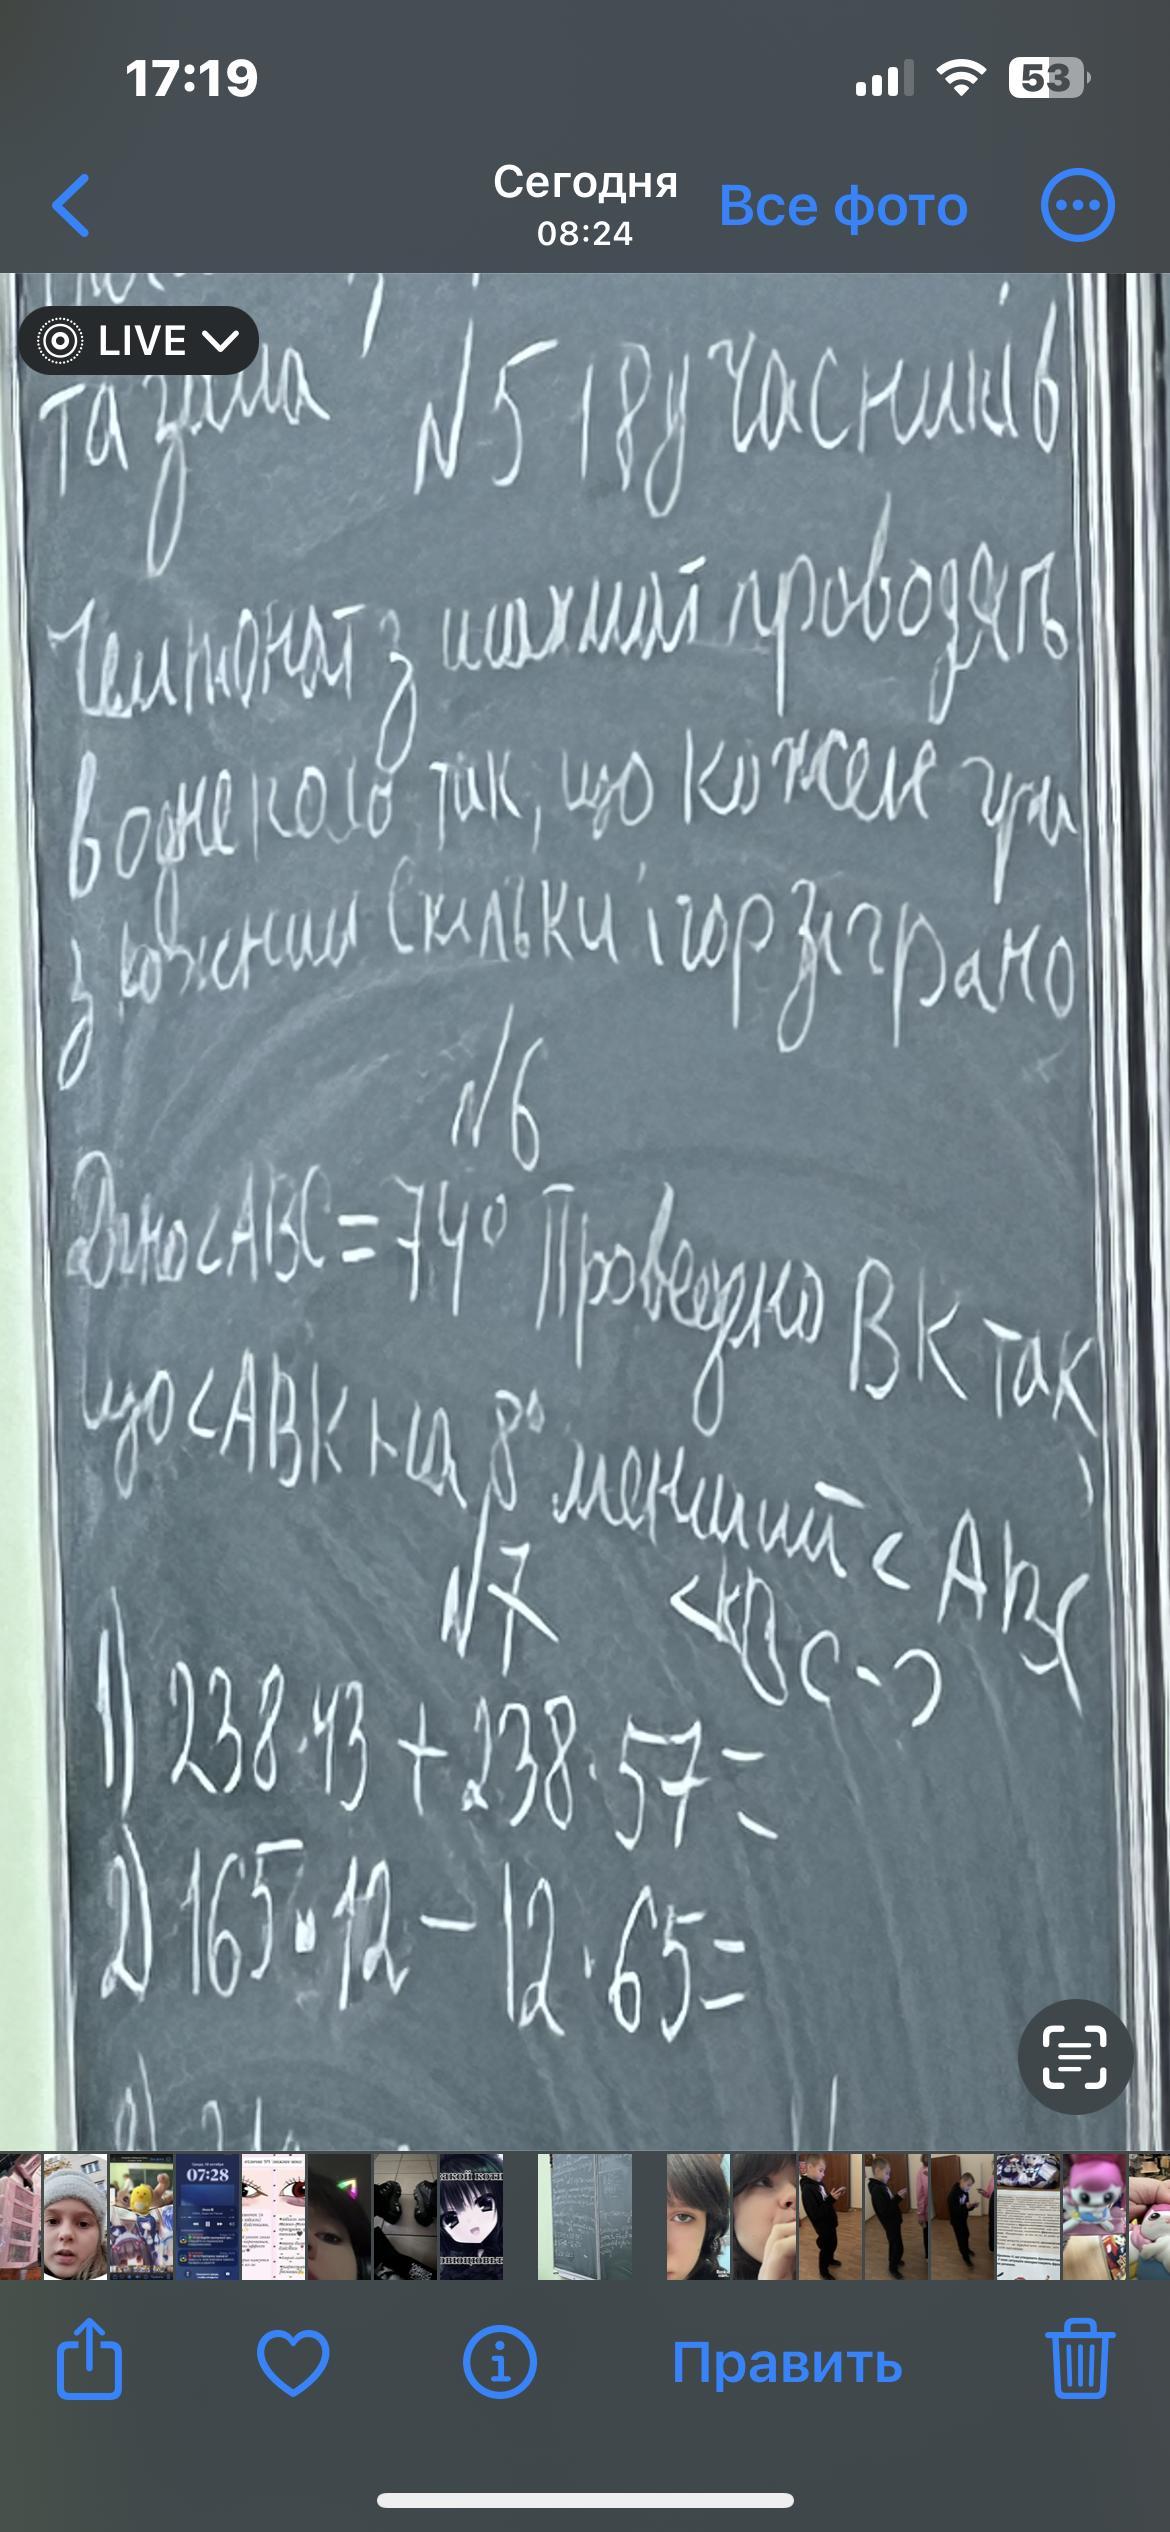 17:19
53
Сегодня
08:24
Все фото
LIVE
та зима №5 18 учасників
Чемпіонат з шахмат проводять
в одне коло так, що кожен грає
з кожним Скільки ігор зіграно
№6
Дано <ABC = 74° Проведно ВК так
що <ABK на 8° менший < ABC
№7 <KBC - ?
1) 238·43 + 238·57 =
2) 165·12 - 12·65 =
07:28
Править